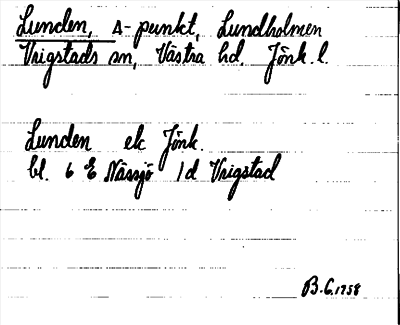 Lunden, Δ-punkt, Lundholmen
Vrigstads sn, Västra hd, Jönk. l.
Lunden ek Jönk.
bl. 6 E Nässjö 1d Vrigstad
B.G. 1958